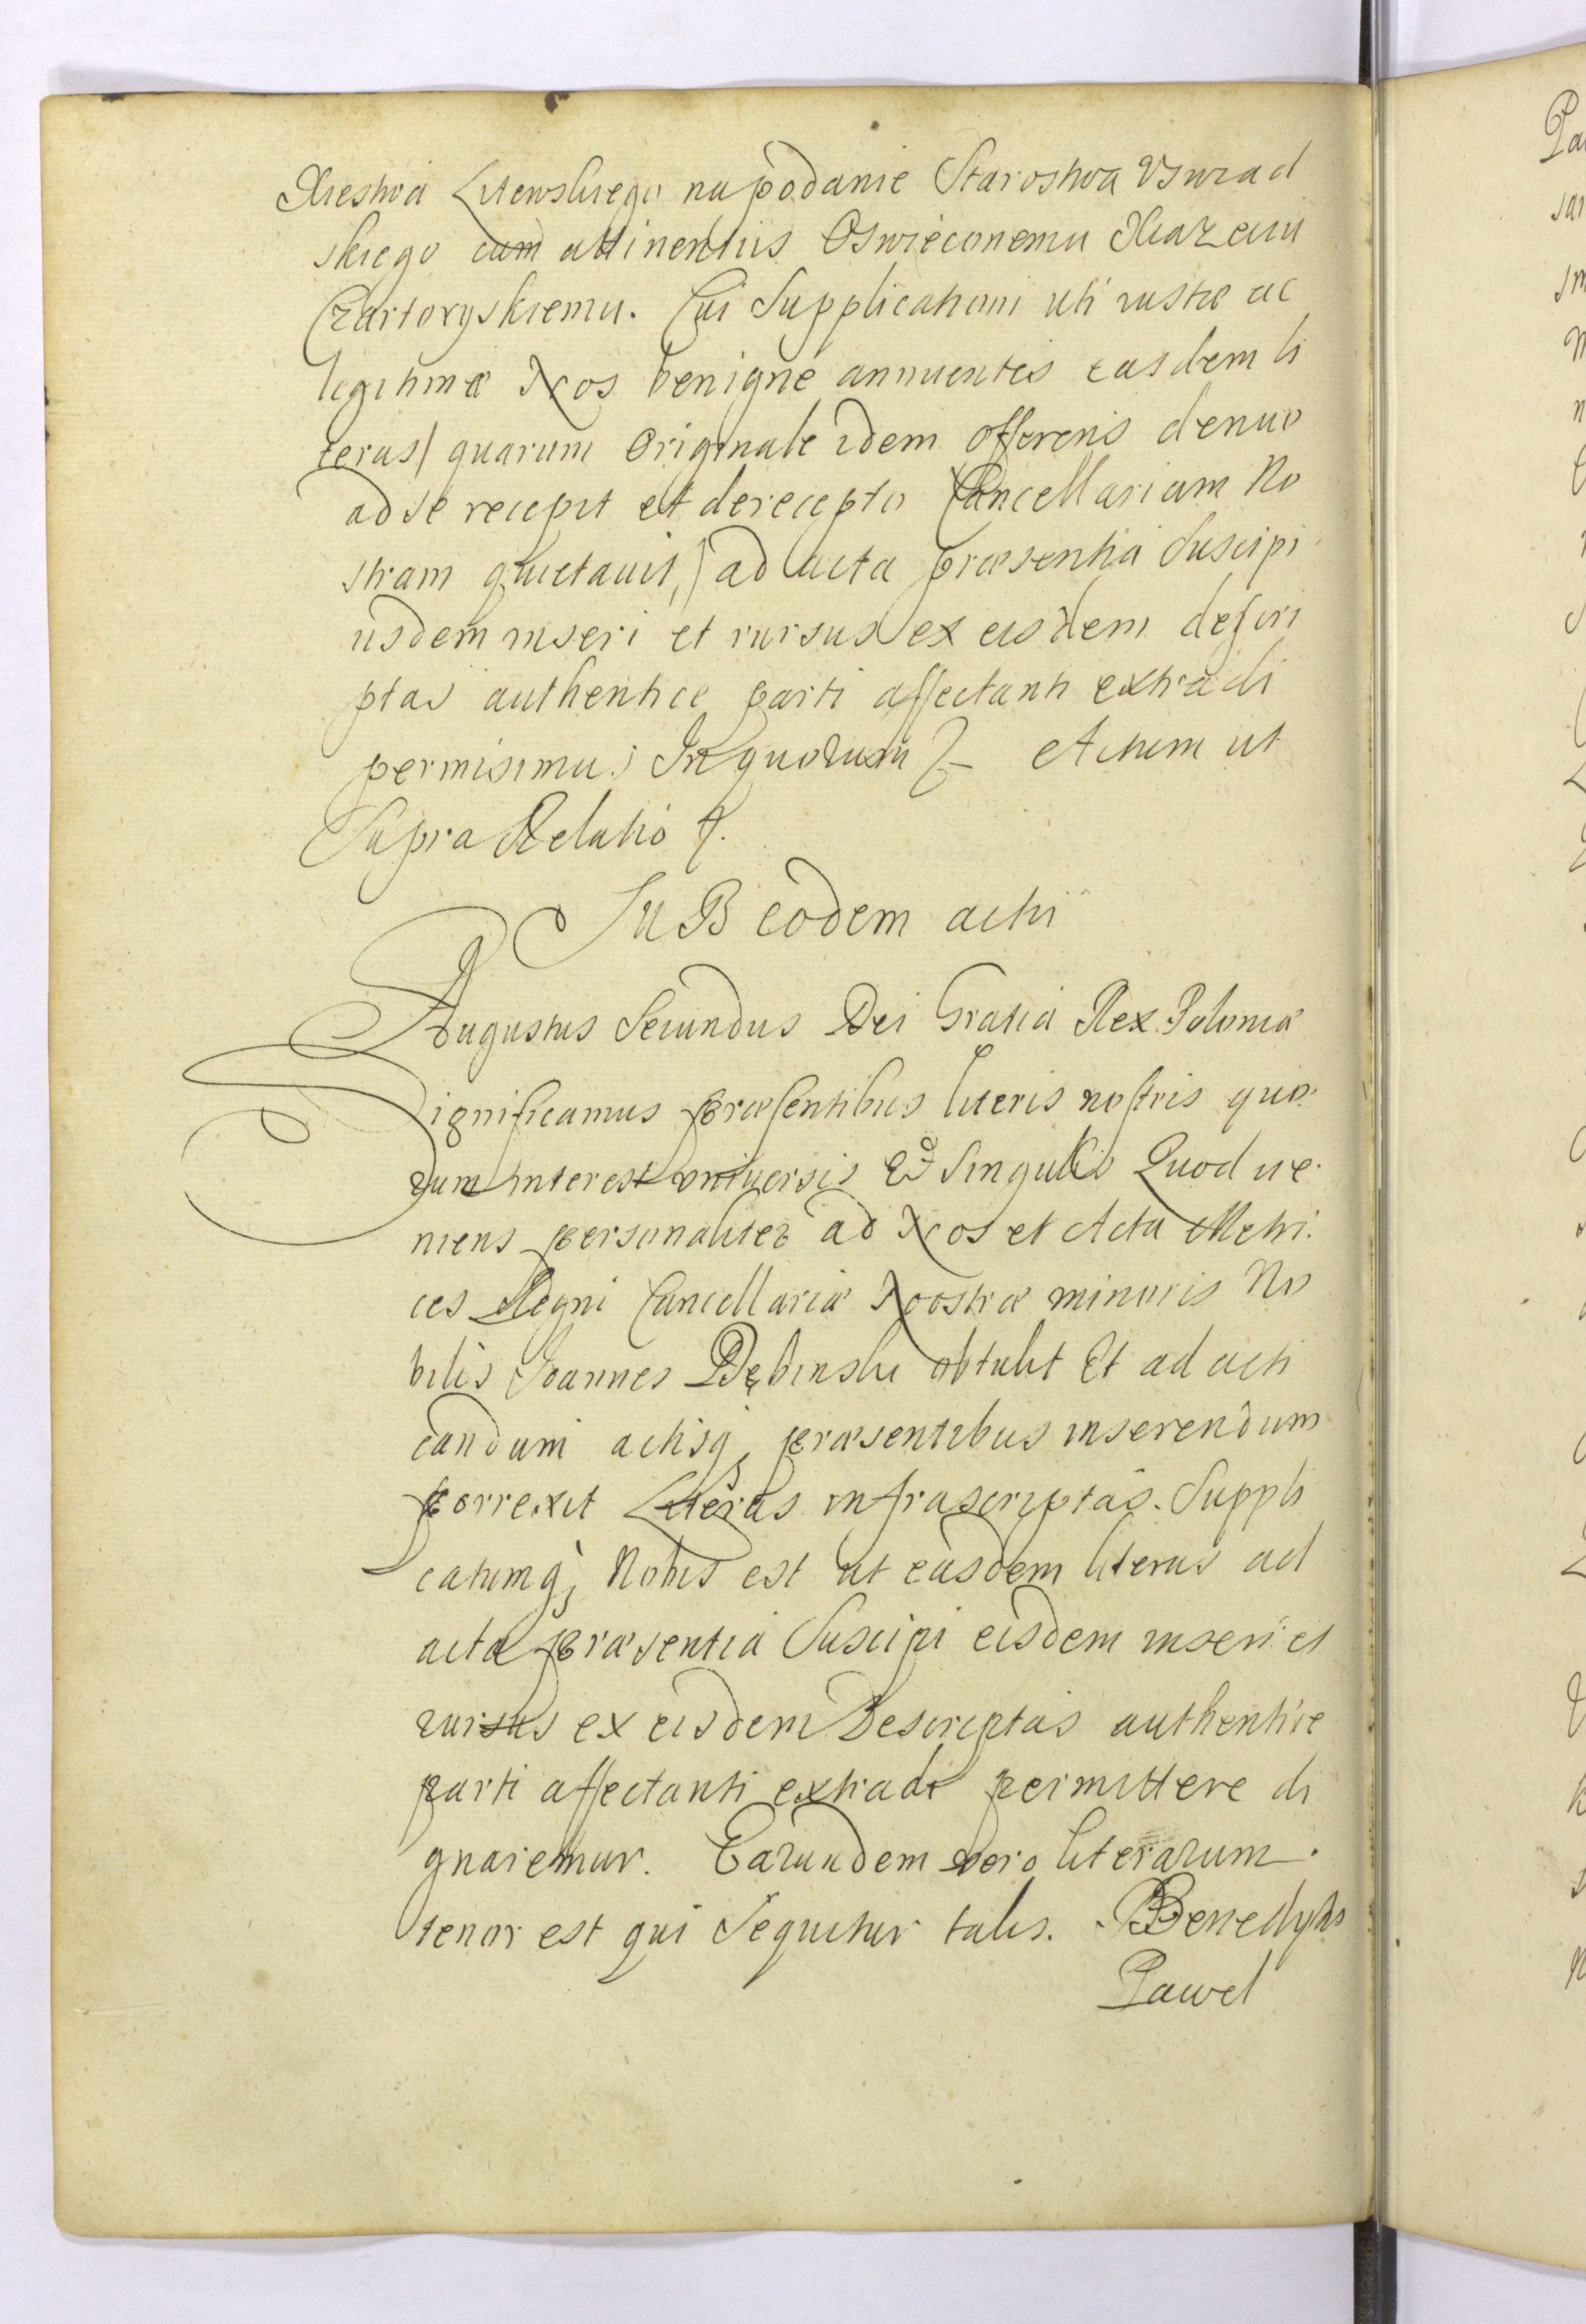 Xiestwa Litewskiego na podanie Starostwa Uswiad
skiego cum attinentiis Oswieconemu Xiazęciu
Czartoryskiemu. Cui Supplicationi uti iustæ ac
legitimæ Nos benigne annuentes easdem li
teras/ quarum Originale idem offerens denuo
ad se recepit et de recepto Cancellariam No
stram quietavit,/ ad acta præsentia suscipi
iisdem inseri et rursus ex eisdem descri
ptas authentice parti affectanti extradi
permisimus In quorum Actum ut
Supra Relatio
SUB eodem actu
Augustus Secundus Dei Gratia Rex Poloniæ
Significamus præsentibus literis nostris quo
rum interest universis Et Singulis Quod ve
niens personaliter ad Nos et Acta Metri
ces Regni Cancellariæ Nostræ minoris No
bilis Joannes Dębinski obtulit Et ad acti
candum actisq, præsentibus inserendum
porrexit Literas infrascriptas. Suppli
catumq, Nobis est ut easdem literas ad
acta præsentia Suscipi eisdem inseri et
rursus ex eisdem Descriptas authentice
parti affectanti extradi permittere di
gnaremur. Earundem vero literarum
tenor est qui Sequitur talis. Benedykt
Pawel
Pa